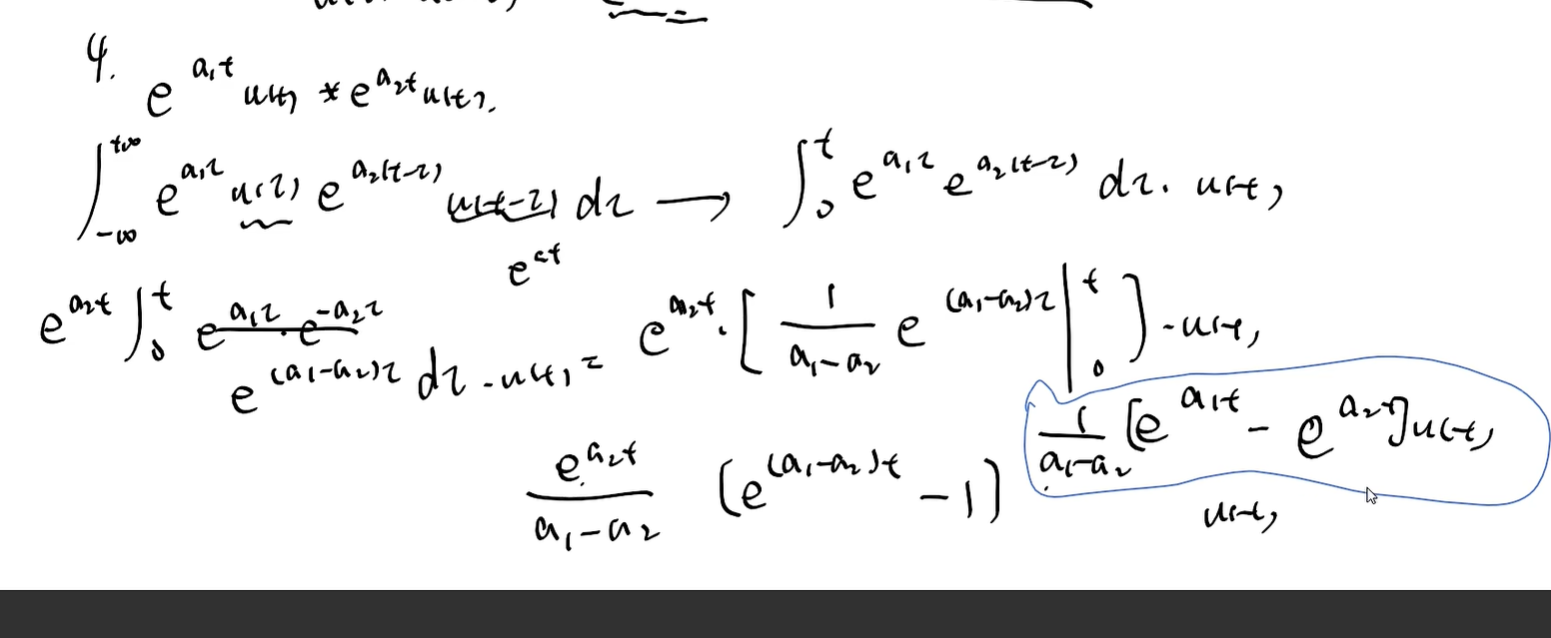 4.
e^{a₁t} u(t) * e^{a₂t} u(t).
∫_{-∞}^{+∞} e^{a₁τ} u(τ) e^{a₂(t-τ)} u(t-τ) dτ → ∫_0^t e^{a₁τ} e^{a₂(t-τ)} dτ · u(t)
e^{at}
e^{a₂t} ∫_0^t e^{a₁τ} · e^{-a₂τ}
e^{(a₁-a₂)τ} dτ · u(t) = e^{a₂t} · [ \frac{1}{a₁-a₂} e^{(a₁-a₂)τ} |_0^t ] · u(t)
\frac{1}{a₁-a₂} [e^{a₁t} - e^{a₂t}] u(t)
\frac{e^{a₂t}}{a₁-a₂} (e^{(a₁-a₂)t} - 1) u(t)